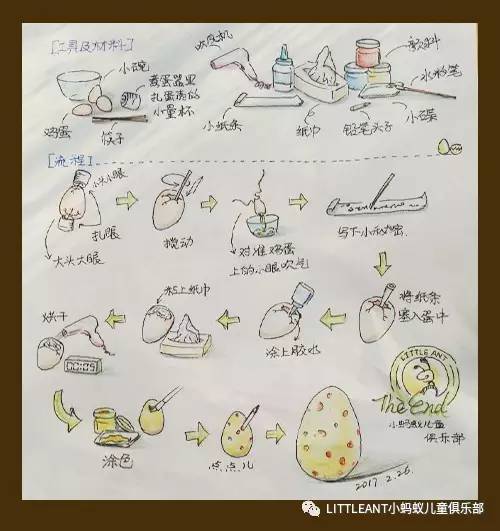 [工具及材料]
小碗
煮蛋器里
扎蛋壳的
小量杯
鸡蛋
筷子
吹风机
颜料
水粉笔
小纸条
纸巾
铅笔头子
小碟
[流程]
小头小眼
扎眼
大头大眼
搅动
对准鸡蛋
上的小眼吹气
写下小秘密
将纸条
塞入蛋中
涂上胶水
粘上纸巾
烘干
00:05
涂色
点点儿
LITTLE ANT
The End
小蚂蚁儿童
俱乐部
2017.2.26.
LITTLEANT小蚂蚁儿童俱乐部